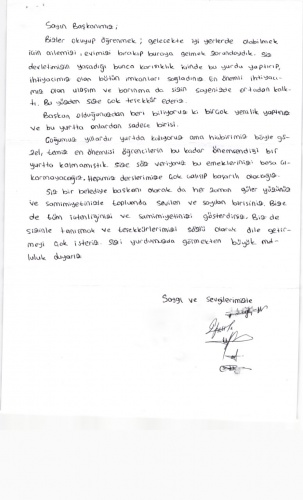 Sayın Başkanımız;
Bizler okuyup öğrenmek; gelecekte iyi yerlerde olabilmek
için ailemizi, evimizi bırakıp buraya gelmek zorundaydık. Siz
devletimizin yaşadığı bunca karışıklık içinde bu yurdu yaptırıp,
ihtiyacımız olan bütün imkanları sağladınız. En önemli ihtiyacı-
mız olan ulaşım ve barınma da sizin sayenizde ortadan kalk-
tı. Bu yüzden size çok teşekkür ederiz.
Başkan olduğunuzdan beri biliyoruz ki birçok yenilik yaptınız
ve bu yurtta onlardan sadece birisi.
Çoğumuz yıllardır yurtda kalıyoruz ama hiçbirimiz böyle gü-
zel, temiz en önemlisi öğrencilerin bu kadar önemsendiği bir
yurtta kalmamıştık. Size söz veriyoruz bu emeklerinizi boşa çı-
karmayacağız, hepimiz derslerimize çok çalışıp başarılı olacağız.
Siz bir belediye başkanı olarak da her zaman güler yüzünüz
ve samimiyetinizle toplumda sevilen ve sayılan birisiniz. Bize
de tüm içtenliğinizi ve samimiyetinizi gösterdiniz. Biz de
sizinle tanışmak ve teşekkürlerimizi sözlü olarak dile getir-
meyi çok isteriz. Sizi yurdumuzda görmekten büyük mut-
luluk duyarız.
Saygı ve Sevgilerimizle